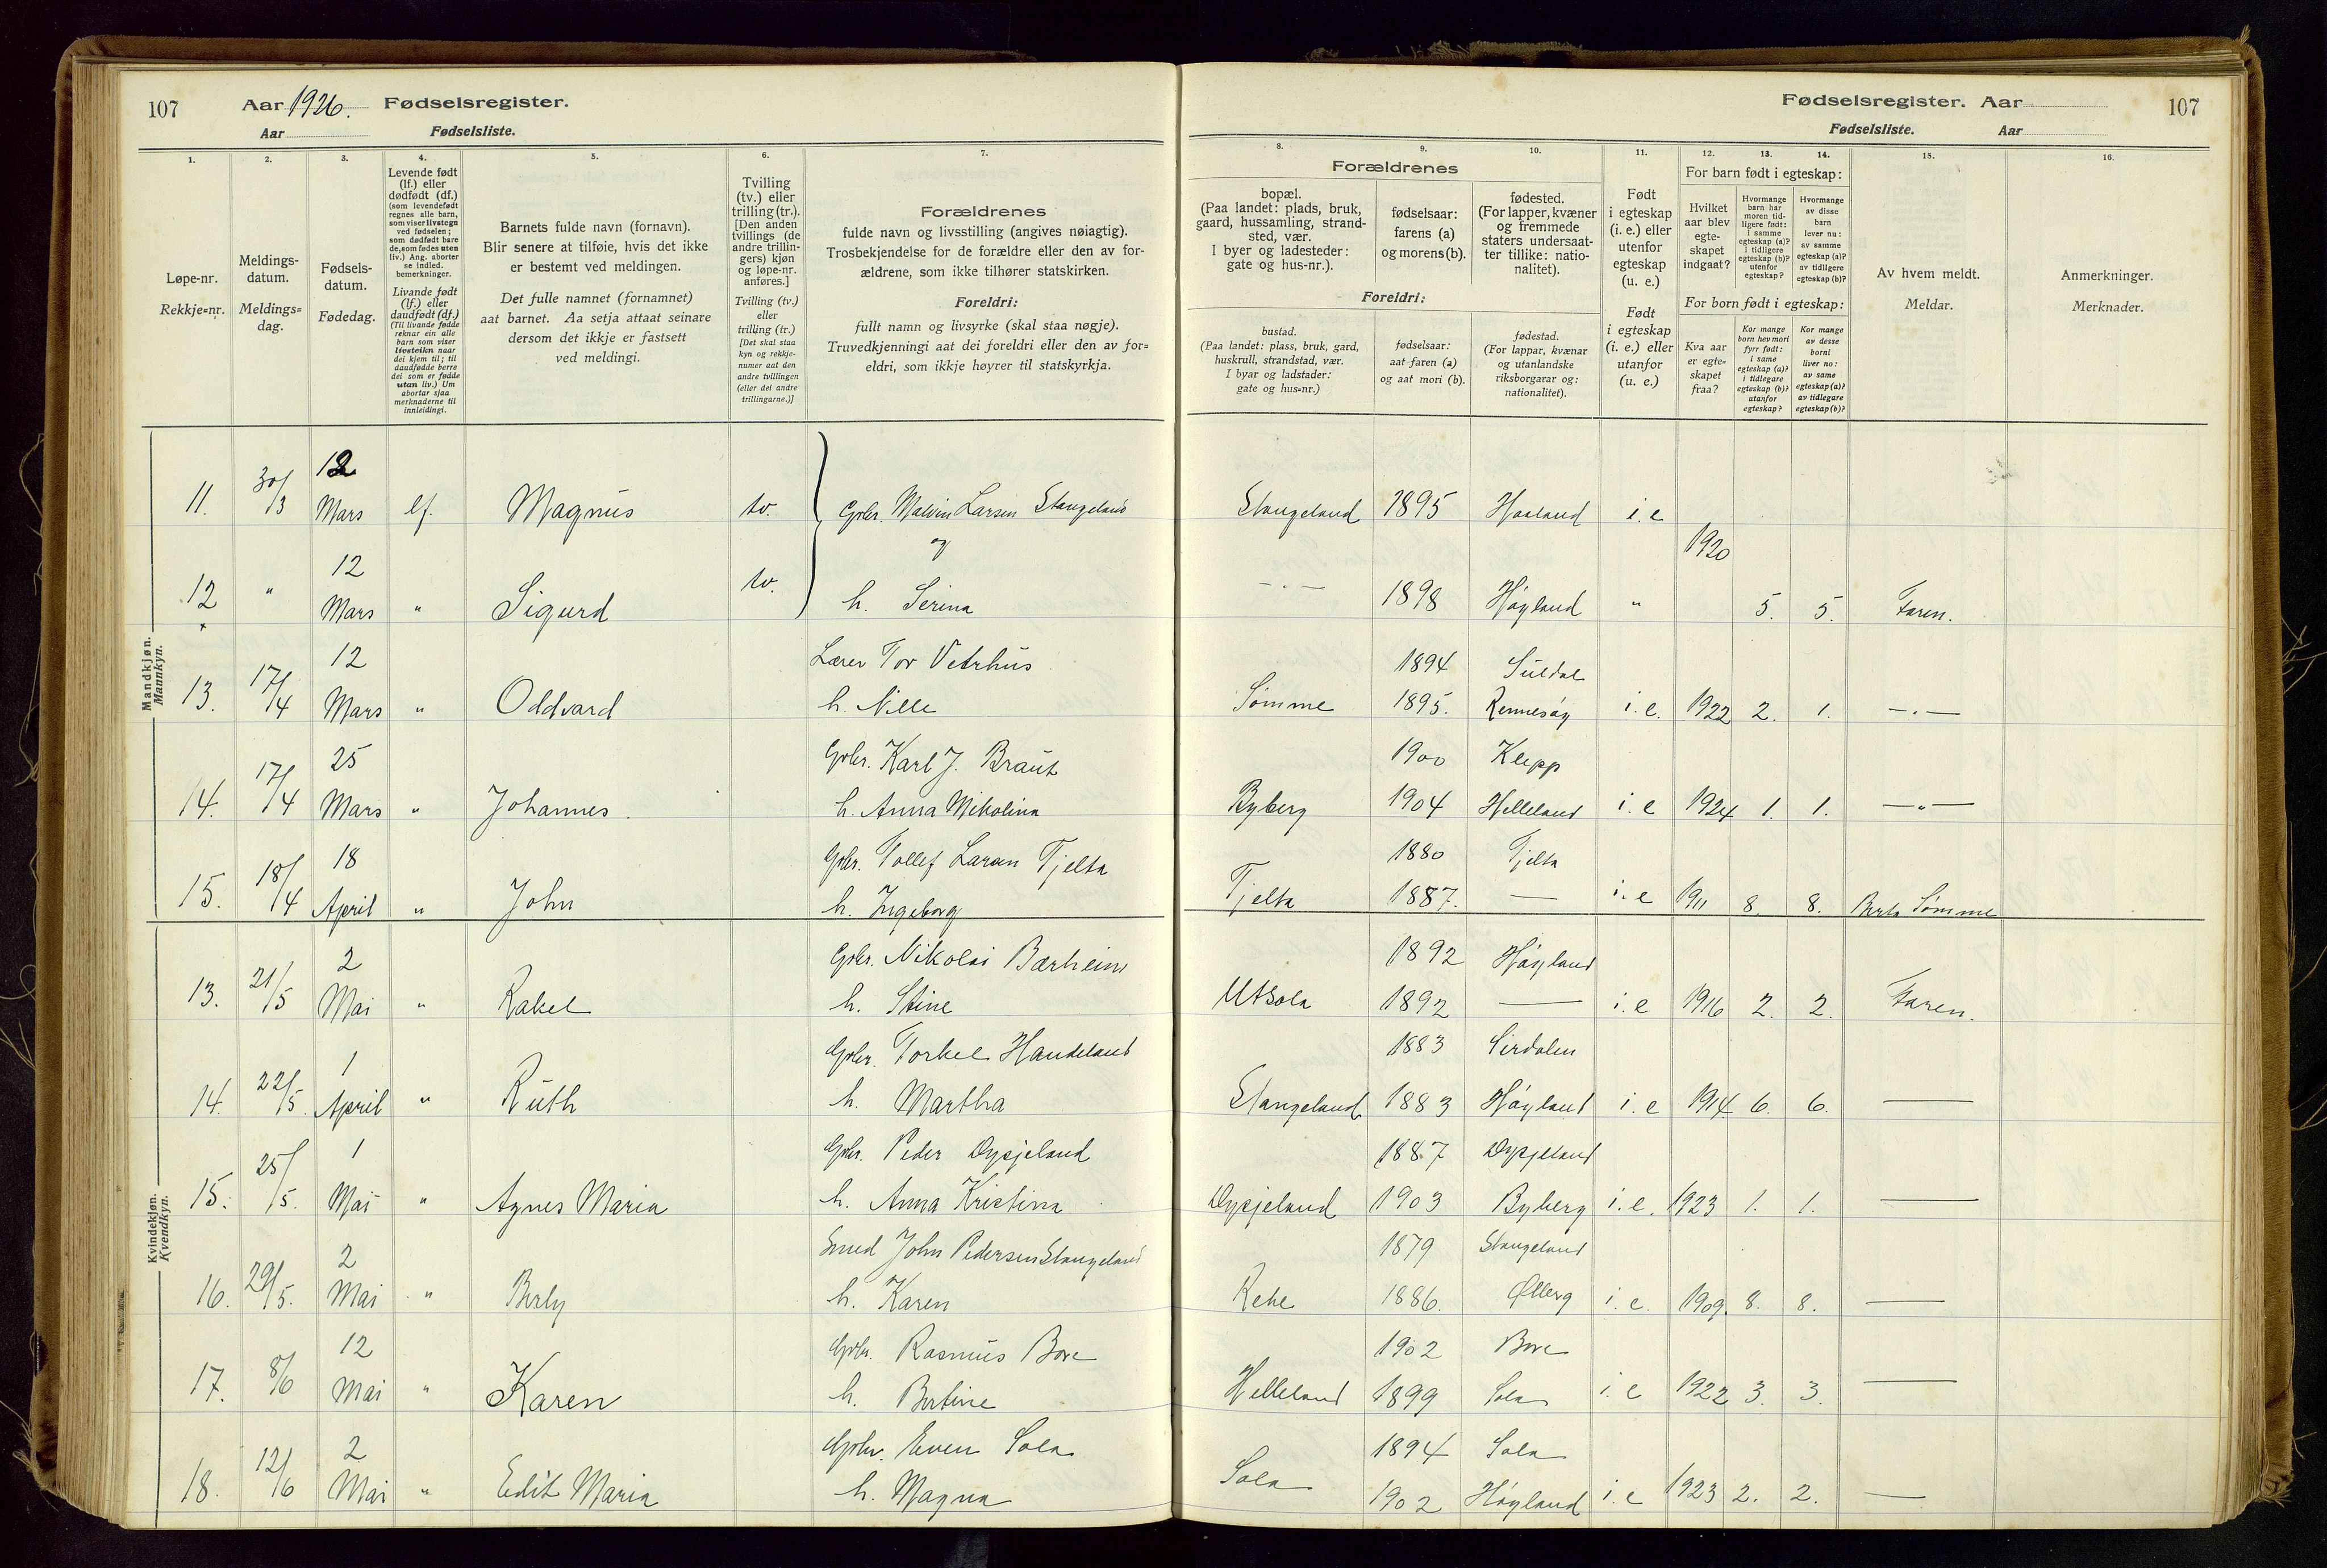 107 Aar 1926. Fødselsregister.
Aar Fødselsliste.
1. 2. 3. 4. 5. 6. 7.
Løpe-nr.
Rekkje=nr.
Meldings-
datum.
Meldings=
dag.
Fødsels-
datum.
Fødedag.
Levende født
(lf.) eller
dødfødt (df.)
(som levendefødt
regnes alle barn,
som viser livstegn
ved fødselen;
som dødfødt bare
de, som fødes uten
liv.) Ang. aborter
se indled.
bemerkninger.
Livande født
(lf.) eller
daudfødt (df.)
(Til livande fødde
reknar ein alle
barn som viser
livsteikn naar
dei kjem til; til
daudfødde berre
dei som er fødde
utan liv.) Um
abortar sjaa
merknaderne til
innleidingi.
Barnets fulde navn (fornavn).
Blir senere at tilføie, hvis det ikke
er bestemt ved meldingen.
Det fulle namnet (fornamnet)
aat barnet. Aa setja attaat seinare
dersom det ikkje er fastsett
ved meldingi.
Tvilling
(tv.) eller
trilling (tr.).
[Den anden
tvillings (de
andre trillin-
gers) kjøn
og løpe-nr.
anføres.]
Tvilling (tv.)
eller
trilling (tr.)
[Det skal staa
kyn og rekkje-
numer aat den
andre tvillingen
(eller dei andre
trillingarne.)]
Forældrenes
fulde navn og livsstilling (angives nøiagtig).
Trosbekjendelse for de forældre eller den av for-
ældrene, som ikke tilhører statskirken.
Foreldri:
fullt namn og livsyrke (skal staa nøgje).
Truvedkjenningi aat dei foreldri eller den av for=
eldri, som ikkje høyrer til statskyrkja.
Mandkjøn.
Mannkyn.
11. 30/3 12 Mars lf. Magnus tv. Gbr. Malvin Larsen Stangeland
og
12 " 12 Mars " Sigurd tv. h. Serina
13. 17/4 12 Mars " Oddvard Lærer Tor Vetrhus
h. Nille
14. 17/4 25 Mars " Johannes. Gbr. Karl J. Braut
h. Anna Nikolina
15. 18/4 18 April " John Gbr. Tollef Larsen Tjelta
h. Ingeborg
Kvindekjøn.
Kvendkyn.
13. 21/5 2 Mai " Rakel Gbr. Nikolai Bærheim
h. Stine
14. 22/5. 1 April " Ruth Gbr. Torkel Handeland
h. Martha
15. 25/5. 1 Mai " Agnes Maria Gbr. Peder Dysjeland
h. Anna Kristina
16. 29/5. 2 Mai " Berly Smed John Pedersen Stangeland
h. Karen
17. 8/6 12 Mai " Karen Gbr. Rasmus Bore
h. Bertine
18. 12/6 2 Mai " Edit Maria Gbr. Even Sola
h. Magna
Fødselsregister. Aar 107
Fødselsliste. Aar
8. 9. 10. 11. 12. 13. 14. 15. 16.
Forældrenes
bopæl.
(Paa landet: plads, bruk,
gaard, hussamling, strand-
sted, vær.
I byer og ladesteder:
gate og hus-nr.).
fødselsaar:
farens (a)
og morens (b).
fødested.
(For lapper, kvæner
og fremmede
staters undersaat-
ter tillike: natio-
nalitet).
Foreldri:
bustad.
(Paa landet: plass, bruk, gard,
huskrull, strandstad, vær.
I byar og ladstader:
gate og hus=nr.)
fødselsaar:
aat faren (a)
og aat mori (b).
fødestad.
(For lappar, kvænar
og utanlandske
riksborgarar og:
nationalitet).
Født
i egteskap
(i. e.) eller
utenfor
egteskap
(u. e.)
Født
i egteskap
(i. e.) eller
utanfor
(u. e.)
For barn født i egteskap:
Hvilket
aar blev
egte-
skapet
indgaat?
Hvormange
barn har
moren tid-
ligere født:
i samme
egteskap (a)?
i tidligere
egteskap (b)?
utenfor
egteskap?
Hvormange
av disse
barn
lever nu:
av samme
egteskap (a)?
av tidligere
egteskap (b)?
For born født i egteskap:
Kva aar
er egte=
skapet
fraa?
Kor mange
born hev mori
fyrr født:
i same
egteskap (a)?
i tidlegare
egteskap (b)?
utanfor
egteskap?
Kor mange
av desse
borni
liver no:
av same
egteskap (a)?
av tidlegare
egteskap (b)?
Av hvem meldt.
Meldar.
Anmerkninger.
Merknader.
Stangeland 1895 Haaland i. e
1920
— " — 1898 Høyland " 5. 5. Faren.
1894 Suldal
Sømme 1895. Rennesøy i. e. 1922 2. 1. — " —
1900 Klepp
Byberg 1904 Helleland i. e 1924 1. 1. — " —
1880 Tjelta
Tjelta 1887. — i. e 1911 8. 8. Berta Sømme
1892 Høyland
Utsola 1892 — i. e 1916 2. 2. Faren.
1883 Sirdalen
Stangeland 1883 Høyland i. e 1914 6. 6. —
1887 Dysjeland
Dysjeland 1903 Byberg i. e. 1923 1. 1. —
1879 Stangeland
Rehe 1886. Ølberg i. e. 1909. 8. 8. —
1902 Bore
Helleland 1899 Sola i. e 1922 3. 3. —
1894 Sola
Sola 1902 Høyland i. e 1923 2. 2. —